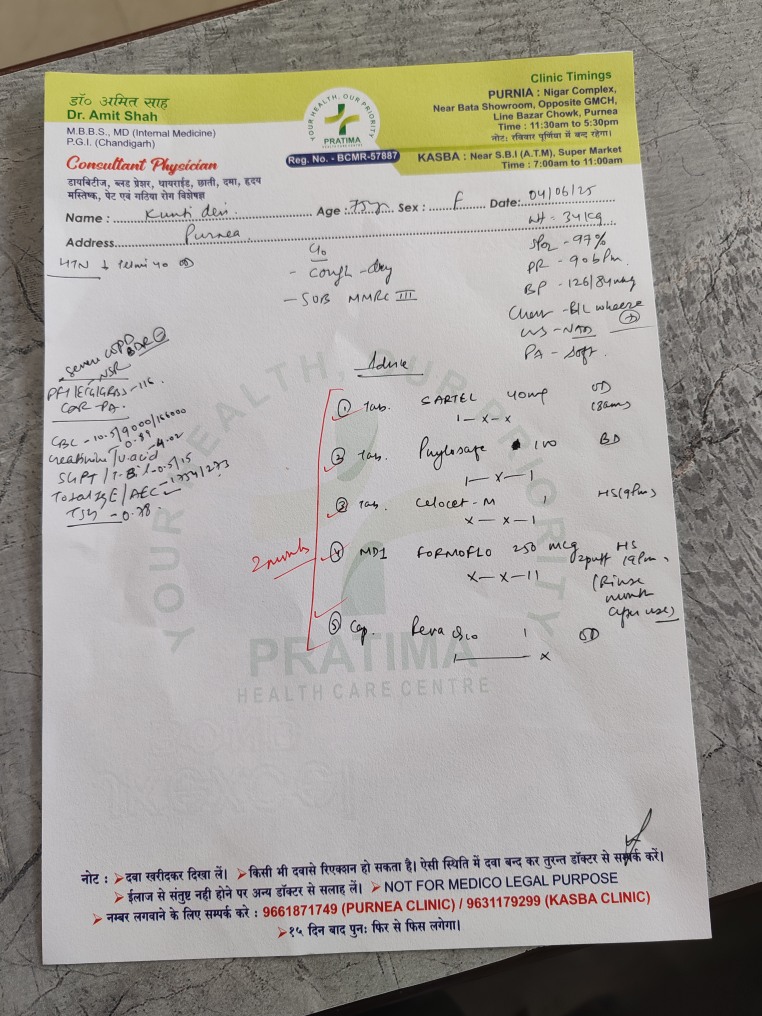 डॉ० अमित साह
Dr. Amit Shah
M.B.B.S., MD (Internal Medicine)
P.G.I. (Chandigarh)
Consultant Physician
डायबिटीज, ब्लड प्रेशर, थायराईड, छाती, दमा, हृदय
मस्तिष्क, पेट एवं गठिया रोग विशेषज्ञ
YOUR HEALTH, OUR PRIORITY
PRATIMA
HEALTH CARE CENTRE
Reg. No. - BCMR-57887
Clinic Timings
PURNIA : Nigar Complex,
Near Bata Showroom, Opposite GMCH,
Line Bazar Chowk, Purnea
Time : 11:30am to 5:30pm
नोट: रविवार पूर्णिया में बन्द रहेगा।
KASBA : Near S.B.I (A.T.M), Super Market
Time : 7:00am to 11:00am
Name : Kunti devi Age : 75yr Sex : F Date: 04/06/25
Address Purnea
Wt = 34 kg
HTN Telmi 40 OD
C/o
- Cough - dry
- SOB MMRC III
SpO2 - 97%
PR - 90 bpm
BP - 126/84
Chest - B/L wheeze
CVS - NAD
PA - Soft
Severe COPD
BDR
NSR
PFT/ECG/GRBS - 116
CXR - PA
CBC - 10.5/9000/
Creatinine/U.acid - 4.02
0.89
SGPT/T.Bil - 0.5/15
Total IgE/AEC - 1734/273
TSH - 0.78
Advice
2 month
① Tab. SARTEL 40mg OD (8am)
1 - x - x
② Tab. Phylosafe 100 BD
1 - x - 1
③ Tab. Celocet-M 1 HS (9pm)
x - x - 1
④ MDI FORMOFLO 250 mcg 2puff HS 19pm
x - x - 11
(Rinse
mouth
after use)
⑤ Cap. 1 OD
1 - x
YOUR HEALTH, OUR PRIORITY
PRATIMA
HEALTH CARE CENTRE
नोट : ➤ दवा खरीदकर दिखा लें। ➤ किसी भी दवासे रिएक्शन हो सकता है। ऐसी स्थिति में दवा बन्द कर तुरन्त डॉक्टर से सम्पर्क करें।
➤ ईलाज से संतुष्ट नही होने पर अन्य डॉक्टर से सलाह लें। ➤ NOT FOR MEDICO LEGAL PURPOSE
➤ नम्बर लगवाने के लिए सम्पर्क करे : 9661871749 (PURNEA CLINIC) / 9631179299 (KASBA CLINIC)
➤ १५ दिन बाद पुन: फिर से फिस लगेगा।